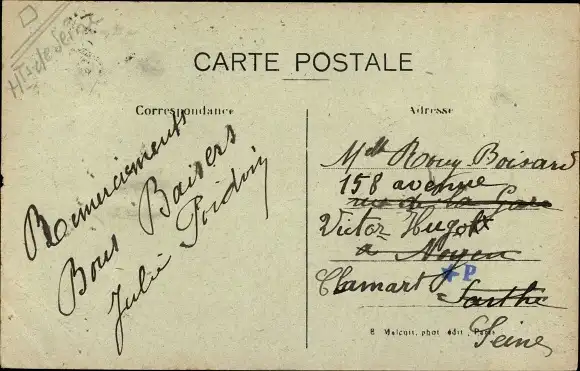 Hts de Seine
CARTE POSTALE
Correspondance
Remerciements
Bons Baisers
Julie Poidvin
Adresse
Mdlle Rouy Boisard
158 avenue
rue de la Gare
Victor Hugo
a Noyen
Clamart
P
Sarthe
Seine
8 Malcuit, phot. edit., Paris